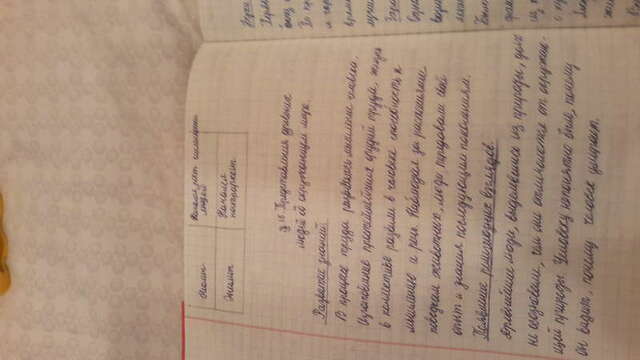 Неолит
Начался рост численности
людей
Энеолит
Начался
патриархат
§ 15. Представления древних
людей об окружающем мире.
Развитие знаний.
В процессе труда развивалось мышление человека.
Изготовление простейших орудий труда, жизнь
в коллективе развили в человеке способность к
мышлению и речи. Наблюдая за растениями
поведением животных, люди передавали свой
опыт и знания последующим поколениям.
Появление религиозных взглядов.
Древнейшие люди, выделившись из природы, долго
не осознавали, чем они отличаются от окружаю-
щей природы. Человеку непонятно было, почему
он видит, почему человек умирает.